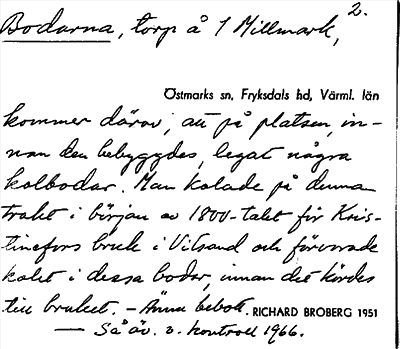 Bodarna, torp å 1 Millmark, 2.
Östmarks sn, Fryksdals hd, Värml. län
kommer därav, att på platsen, in-
nan den bebyggdes, legat några
kolbodar. Man kolade på denna
trakt i början av 1800-talet för Kris-
tinefors bruk i Vitsand och förvarade
kolet i dessa bodar, innan det kördes
till bruket. - Ännu bebott. RICHARD BROBERG 1951
— Så äv. v. kontroll 1966.